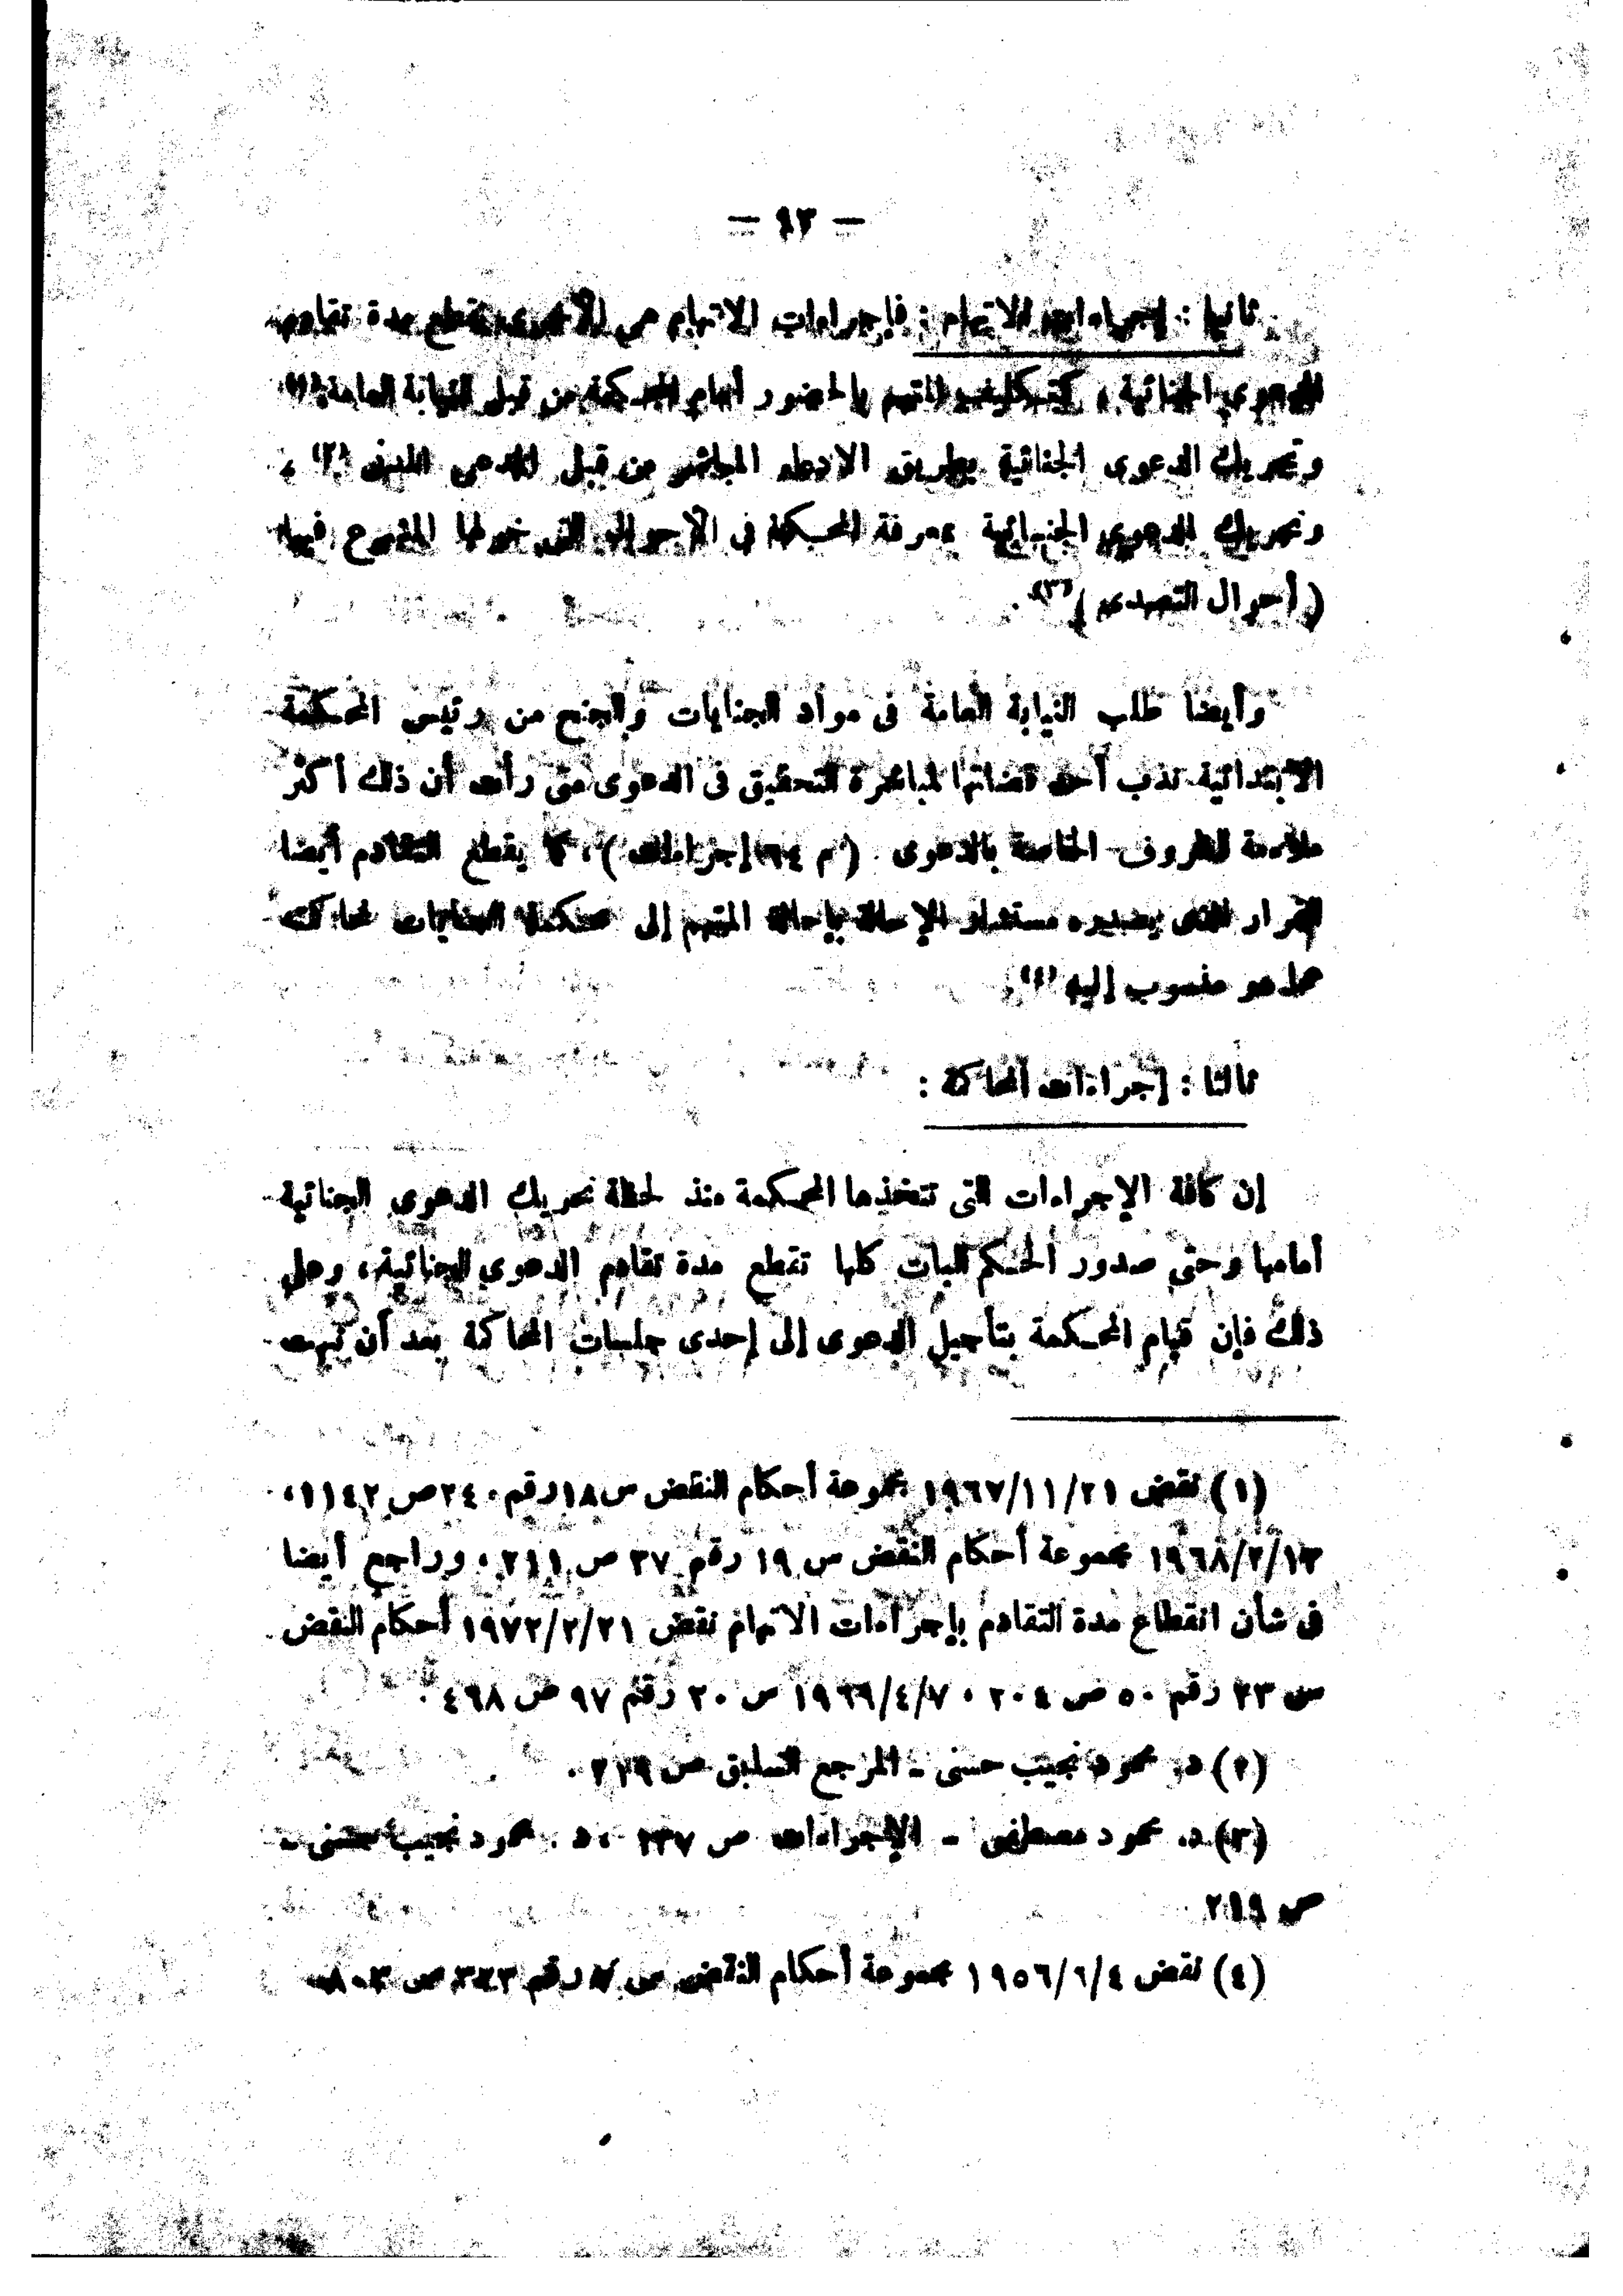 — ٩٣ —
ثانيا : إجراءات الاتهام : فإجراءات الاتهام هى الأخرى تقطع مدة تقادم
الدعوى الجنائية ، كتكليف المتهم بالحضور أمام المحكمة من قبل النيابة العامة(١)،
وتحريك الدعوى الجنائية بطريق الادعاء المباشر من قبل المدعى المدنى (٢) ،
وتحريك الدعوى الجنائية بمعرفة المحكمة فى الأحوال التى خولها المشرع فيها
( أحوال التصدى )(٣) .
وأيضا طلب النيابة العامة فى مواد الجنايات والجنح من رئيس المحكمة
الابتدائية ندب أحد قضاتها لمباشرة التحقيق فى الدعوى متى رأت أن ذلك أكثر
ملاءمة لظروف الخاصة بالدعوى ( م ٦٤ إجراءات ) ، كما يقطع التقادم أيضا
القرار الذى يصدره مستشار الإحالة بإحالة المتهم إلى محكمة الجنايات لمحاكمته
عما هو منسوب إليه (٤) .
ثالثا : إجراءات المحاكمة :
إن كافة الإجراءات التى تتخذها المحكمة منذ لحظة تحريك الدعوى الجنائية
أمامها وحتى صدور الحكم البات كلها تقطع مدة تقادم الدعوى الجنائية ، وعلى
ذلك فإن قيام المحكمة بتأجيل الدعوى إلى إحدى جلسات المحاكمة بعد أن
(١) نقض ١٩٦٧/١١/٢١ مجموعة أحكام النقض س ١٨ رقم ٢٤٠ ص ١١٤٢ ،
١٩٦٨/٢/١٣ مجموعة أحكام النقض س ١٩ رقم ٣٧ ص ٢١١ ، وراجع أيضا
فى شأن انقطاع مدة التقادم بإجراءات الاتهام نقض ١٩٧٢/٢/٢١ أحكام النقض
س ٢٣ رقم ٥٠ ص ٢٠٤ ، ١٩٦٩/٤/٧ س ٢٠ رقم ٩٧ ص ٤٦٨ .
(٢) د. محمود نجيب حسنى - المرجع السابق ص ٢١٩ .
(٣) د. محمود مصطفى - الإجراءات ص ١٣٧ ، د. محمود نجيب حسنى -
ص ٢١٩
(٤) نقض ١٩٥٦/٦/٤ مجموعة أحكام النقض س ٧ رقم ص